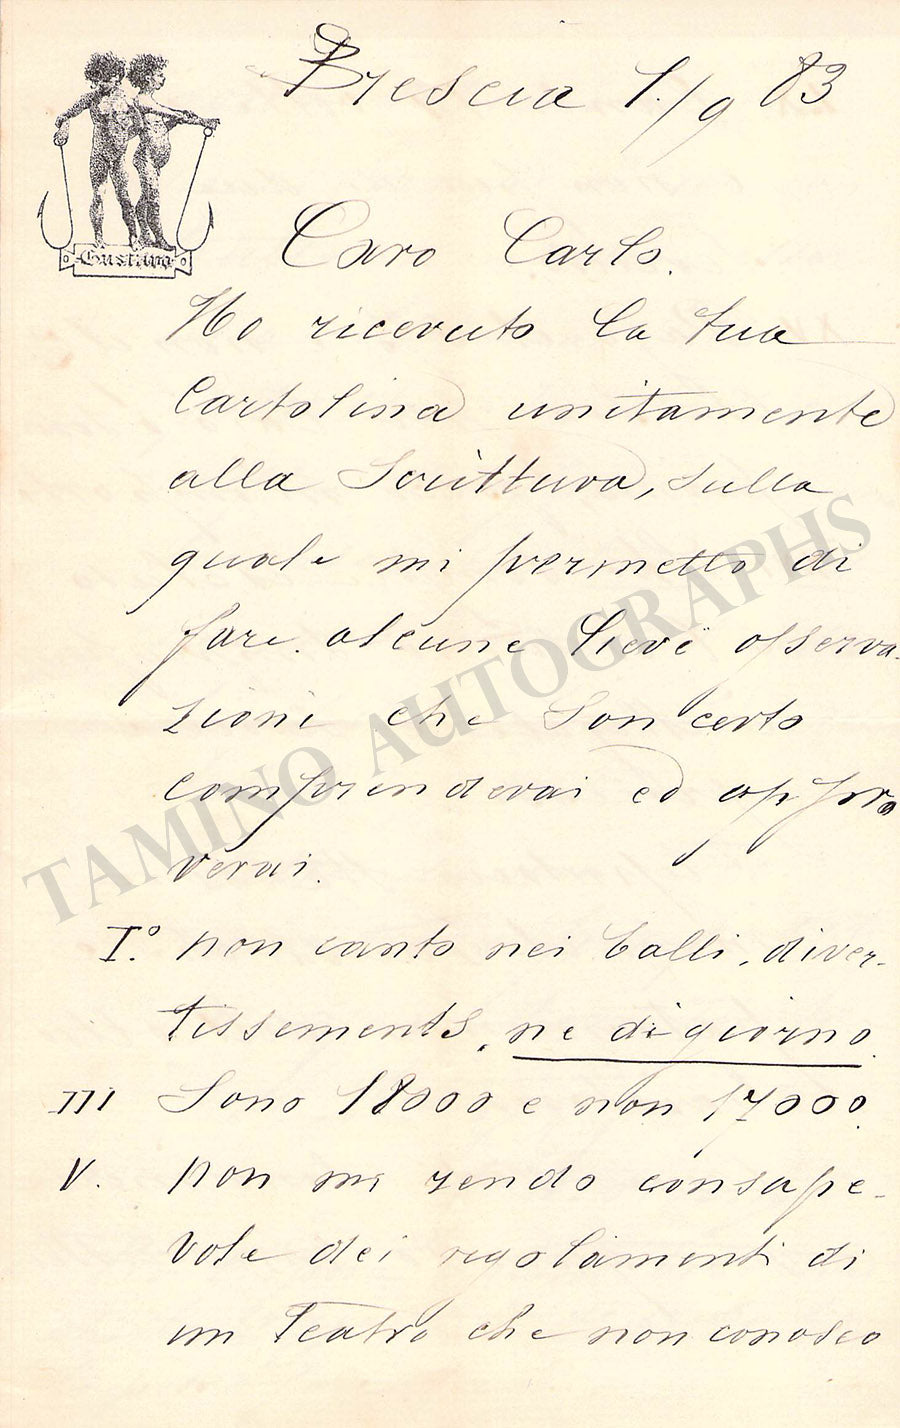 Brescia 1./9 83
Gustavo
Caro Carlo.
Ho ricevuto la tua
Cartolina unitamente
alla Scrittura, sulla
quale mi permetto di
fare alcune lievi osserva-
zioni che son certo
comprenderai ed appro
verai.
I.° non canto nei balli, diver-
tissements, ne di giorno.
III Sono 18000 e non 17000.
V. non mi rendo consape-
vole dei regolamenti di
un Teatro che non conosco
TAMINO AUTOGRAPHS